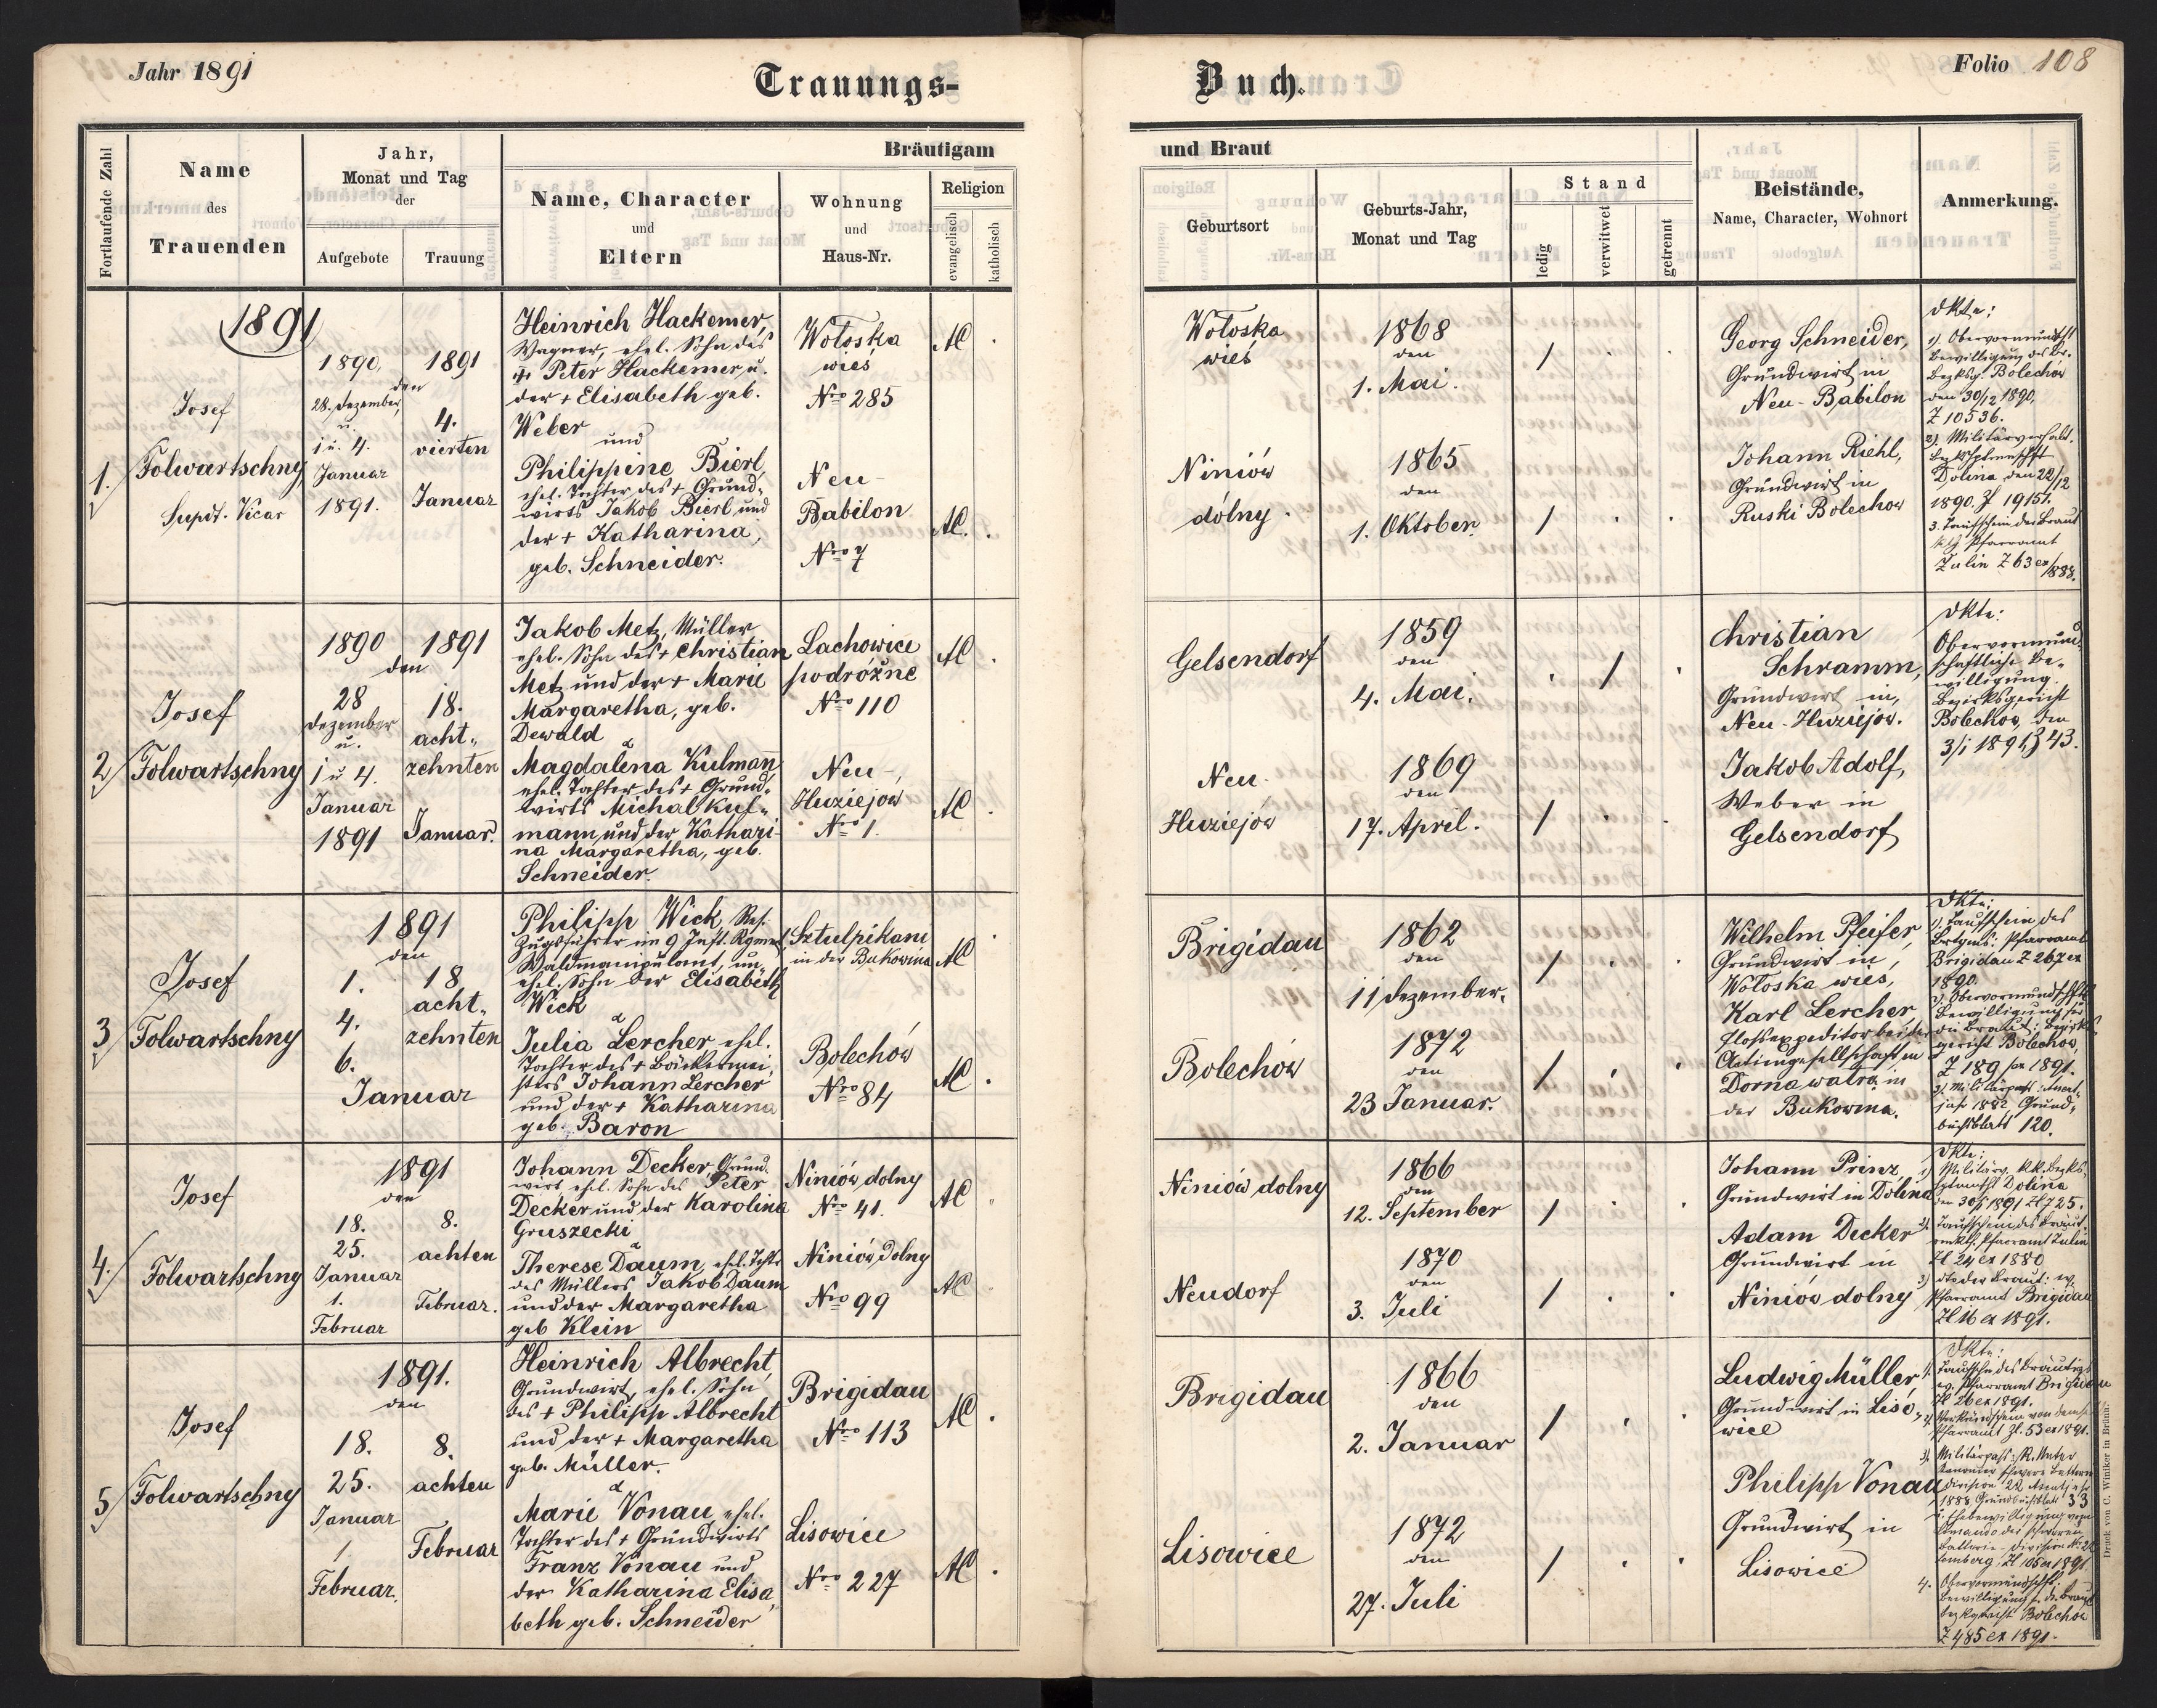 Jahr 1891
Trauungs-
Buch.
Folio 108
Fortlaufende Zahl
Name
des
Trauenden
Jahr,
Monat und Tag
der
Aufgebote
Trauung
Bräutigam
Name, Character
und
Eltern
Wohnung
und
Haus-Nr.
Religion
evangelisch
katholisch
und Braut
Geburtsort
Geburts-Jahr,
Monat und Tag
Stand
ledig
verwitwet
getrennt
Beistände,
Name, Character, Wohnort
Anmerkung.
1891
1.
Josef
Folwartschny,
Supdt. Vicar
1890,
1891
den
28. Dezember,
u.
1 u. 4.
Januar
1891.
4.
vierten
Januar
Heinrich Hackemer,
Wagner, ehel. Sohn des
+ Peter Hackemer u.
der + Elisabeth geb.
Weber
und
Philippine Bierl,
ehel. Tochter des + Grund-
wirts Jakob Bierl und
der + Katharina,
geb. Schneider.
Wołoska
wieś
Nro 285
Neu-
Babilon
Nro 7
AC
AC.
Wołoska
wieś
Niniów
dólny.
1868
den
1. Mai.
1865
den
1. Oktober.
Georg Schneider,
Grundwirt in
Neu-Babilon
Johann Riehl,
Grundwirt in
Ruski Bolechow
Dkte:
1) Obervormundschft
Bewilligung des Be-
bezksg. Bolechow
den 30/12 1890,
Z 10536.
2) Militärverhält.
Bezkshptmnschft
Dolina den 22/12
1890. Zl 19157.
3. Taufschein der Braut
Pfarramt
Zulin Z 63 ex/1888.
2
Josef
Folwartschny
1890
1891
den
28
Dezember
u.
1 u 4.
Januar
1891
18.
acht-
zehnten
Januar.
Jakob Metz, Müller
ehel. Sohn des + Christian
Metz und der + Marie
Margaretha, geb.
Dewald
&
Magdalena Kulmann
ehel. Tochter des + Grund-
wirts Michal Kul-
mann und der Kathari-
na Margaretha, geb.
Schneider.
Lachowice
podróżne
Nro 110
Neu-
Huziejow
Nro 1.
AC
AC
Gelsendorf
Neu-
Huziejów
1859
den
4. Mai.
1869
den
17. April.
Christian
Schramm,
Grundwirt in,
Neu-Huziejów.
Jakob Adolf,
Weber in
Gelsendorf
Dkte:
Obervormund-
schaftliche Be-
willigung.
Bezirksgericht
Bolechow, den
3/1 1891 Z 43.
3
Josef
Folwartschny
1891
den
1.
4.
6.
18
acht-
zehnten
Januar
Philipp Wick, Res.
Zugsführer im 9 Inft. Rgmnt,
Waldmanipulant, un-
ehel. Sohn der Elisabeth
Wick
&
Julia Lercher ehel.
Tochter des + Bäckermei-
sters Johann Lercher
und der + Katharina
geb. Baron
Sztulpikani
in der Bukowina
Bolechów
Nro 84
AC
AC
Brigidau
Bolechów
1862
den
11 Dezember.
1872
den
23 Januar.
Wilhelm Pfeifer,
Grundwirt in,
Wołoska wieś,
Karl Lercher,
Flossexpeditor bei der
Actiengesellschaft in
Dorna watra in
der Bukowina.
Dkte:
1) Taufschein des
Brtgms: Pfarramt
Brigidau Z 267 ex
1890.
2) Obervormundschftl
Bewilligung für
die Braut: Bezirks-
gericht Bolechow,
Z 189 ex 1891.
3) Militärpass: Assent-
jahr 1882 Grund-
buchsblatt 120.
4.
Josef
Folwartschny
1891
den
18.
25.
Januar
1.
Februar
8.
achten
Februar.
Johann Decker, Grund-
wirt, ehel. Sohn des Peter
Decker und der Karolina
Gruszecki
&
Therese Daum, ehel. Tochter
des Müllers Jakob Daum
und der Margaretha
geb Klein
Niniów dolny
Nro 41.
Niniów Dolny
Nro 99
AC
AC
Niniów dolny
Neudorf
1866
den
12. September
1870
den
3. Juli
Johann Prinz,
Grundwirt in Dolina
Adam Decker
Grundwirt in
Niniów dolny
Dkte:
1) Militärv. kk. Bezks-
hptmschft Dolina
den 30/1 1891 Zl 725.
2) Taufschein des Bräut.
Pfarramt Zulin
Zl 24 ex 1880
3) dto der Braut: ev.
Pfarramt Brigidau
Zl 16 ex 1891.
5
Josef
Folwartschny
1891.
den
18.
25.
Januar
1
Februar.
8.
achten
Februar
Heinrich Albrecht,
Grundwirt, ehel. Sohn
des + Philipp Albrecht
und der + Margaretha
geb. Müller.
&
Marie Vonau, ehel.
Tochter des + Grundwirts
Franz Vonau und
der Katharina Elisa-
beth geb. Schneider
Brigidau
Nro 113
Lisowice
Nro 227
AC
AC
Brigidau
Lisowice
1866
den
2. Januar
1872
den
27. Juli
Ludwig Müller,
Grundwirt in Liso-
wice
Philipp Vonau
Grundwirt in
Lisowice
Dkte:
1. Taufschn des Bräutigs
ev. Pfarramt Brigidau
Zl 26 ex 1891.
2. Verkündschein von demselb
Pfarramt Zl. 53 ex 1891.
3) Militärpass:
Kanonier schwere Batterie
Division 22 Assentjahr
1888 Grundbuchsblatt 33
Ehebewilligung vom
Comando der schweren
Batterie-Division Nr 22
Lemberg. Zl 105 ex 1891
4. Obervormundschftl.
Bewilligung f. die Braut
Bezksgericht Bolechow
Z 485 ex 1891.
Druck von C. Winiker in Brünn.